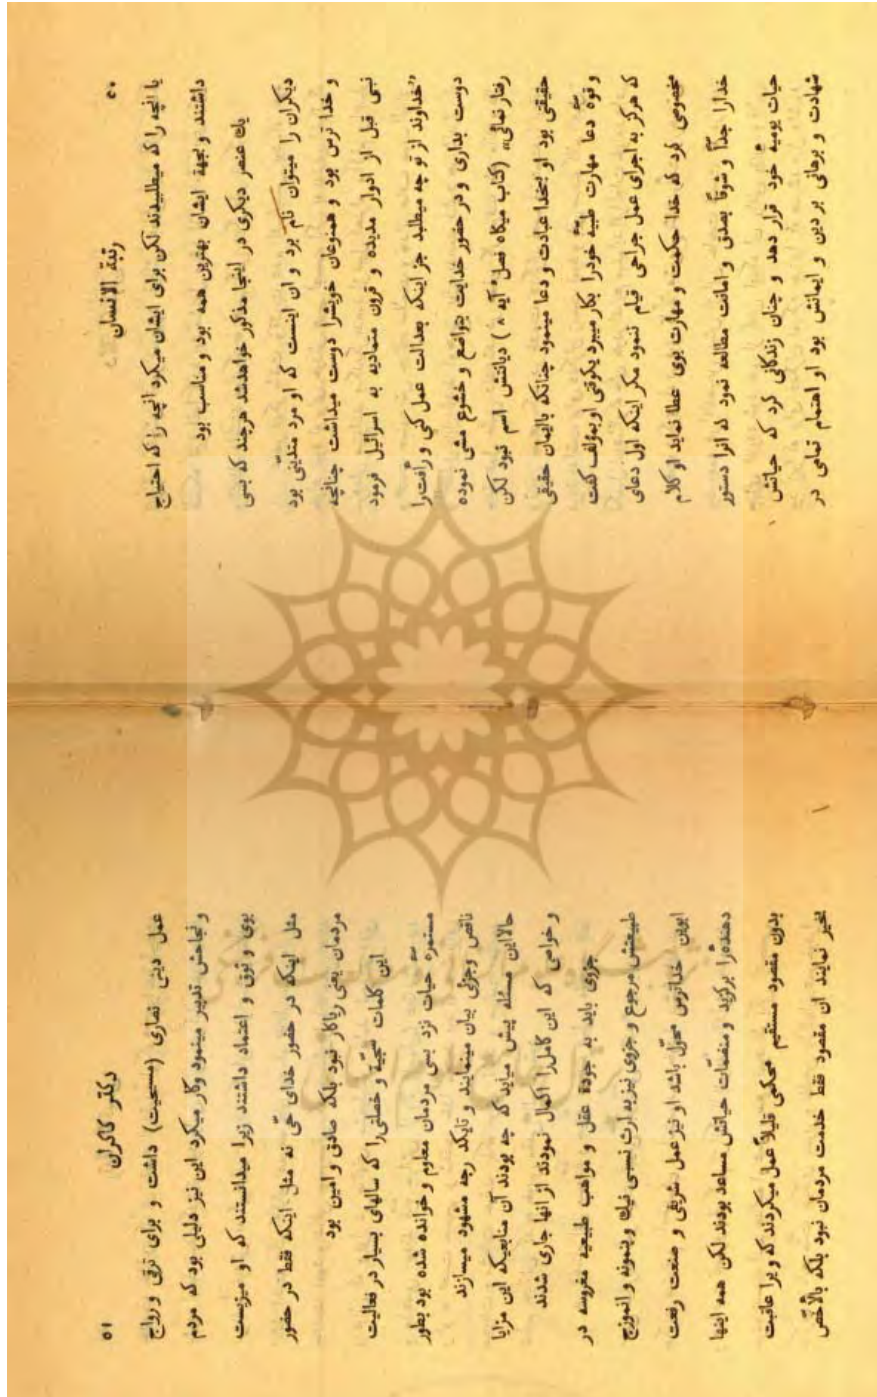 ۵۰
رتبة الانسان
یا انچه را که میطلبیدند لکن برای ایشان میکرد انچه را که احتیاج
داشتند و بجهة ایشان بهترین همه بود و مناسب بود
یك عنصر دیگری در اینجا مذکور خواهدشد هرچند که بسی
دیگران را میتوان نام برد و ان اینست که او مرد متدیّنی بود
و خدا ترس بود و همنوعان خویشرا دوست میداشت چنانچه
نبی قبل از ادوار مدیده و قرون متمادیه به اسرائیل فرمود
”خداوند از تو چه میطلبد جز اینکه بعدالت عمل کنی و رأفت را
دوست بداری و در حضور خدایت بتواضع و خشوع مشی نموده
رفتار نمائی„ (کتاب میکاه فصل ۶ آیه ۸) دیانتش اسم نبود لکن
حقیقی بود او بخدا عبادت و دعا مینمود چنانکه باایمان حقیقی
و قوۀ دعا مهارت طبیّۀ خودرا بکار میبرد یکوقتی او بمؤلف کفت
که هرکز به اجرای عمل جراحی قیام ننمود مکر اینکه اول دعای
مخصوصی کرد که خدا حکمت و مهارت بوی عطا نماید او کلام
خدارا جدّاً و شوقاً بصدق و امانت مطالعه نمود که انرا دستور
حیات یومیۀ خود قرار دهد و چنان زندکانی کرد که حیاتش
شهادت و برهانی بر دین و ایمانش بود او اهتمام تمامی در
۵۱
دکتر کاکران
عمل دینی نصاری (مسیحیت) داشت و برای ترقی و رواج
و نجاحش تدبیر مینمود وکار میکرد این نیز دلیلی بود که مردم
بوی وثوق و اعتماد داشتند زیرا میدانستند که او میزیست
مثل اینکه در حضور خدای حّی نه مثل اینکه فقط در حضور
مردمان یعنی ریاکار نبود بلکه صادق و امین بود
این کلمات سّجیة و خصلتی را که سالهای بسیار در فعالیت
مستمرۀ حیات نزد بسی مردمان معلوم و خوانده شده بود بطور
ناقص و جزئی بیان مینمایند و تایکد رجه مشهود میسازند
حالا این مسئله پیش میاید که چه بودند آن منابعیکه این مزایا
و خواصی که این کامل را اکمال نمودند از انها جاری شدند
جزوی باید به جودة عقل و مواهب طبیعیه مغروسه در
طبیعتش مرجوع و جزوی نیز به ارث نسبی نیك و بنمونه و انموزج
ابوین خداترس محّول باشد او نیز عمل شریفی و صنعت رفعت
دهندۀرا برکزید و منضمّات حیاتش مساعد بودند لکن همه اینها
بدون مقصود مستقیم محکمی قلیلاً عمل میکردند که ویرا عاقبت
بخیر نمایند ان مقصود فقط خدمت مردمان نبود بلکه بالأخّص